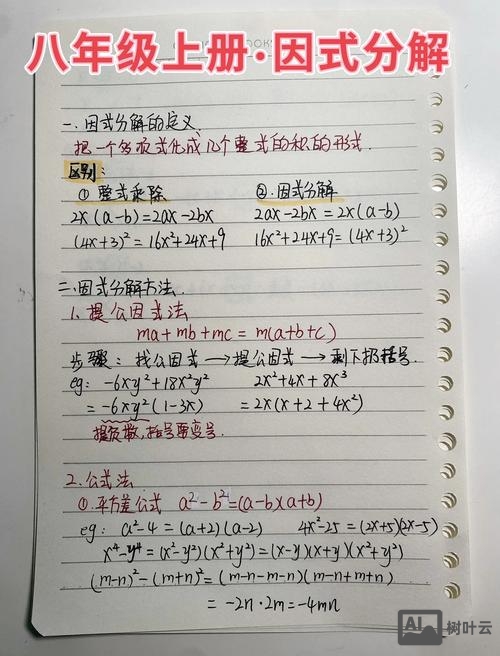 八年级上册·因式分解
一.因式分解的定义
把一个多项式化成几个整式的积的形式.
区别:
①整式乘除 ②.因式分解
2x(a-b)=2ax-2bx 2ax-2bx=2x(a-b)
(4x+3)²=16x²+24x+9 16x²+24x+9=(4x+3)²
二.因式分解方法.
1.提公因式法
ma+mb+mc=m(a+b+c)
步骤:找公因式→提公因式→剩下扔括号.
eg: -6xy²+18x²y² 2x²+4x+8x³
=-6xy²(1-3x) =2x(x+2+4x²)
提负数,括号要变号.
2.公式法
①.平方差公式 a²-b²=(a-b)(a+b)
eg: a²-4=(a+2)(a-2) 4x²-25=(2x+5)(2x-5)
x⁴-y⁴=(x²-y²)(x²+y²)=(x-y)(x+y)(x²+y²)
(m-n)²-(m+n)²=(m-n-m-n)(m-n+m+n)
=-2n·2m=-4mn
AI 树叶云